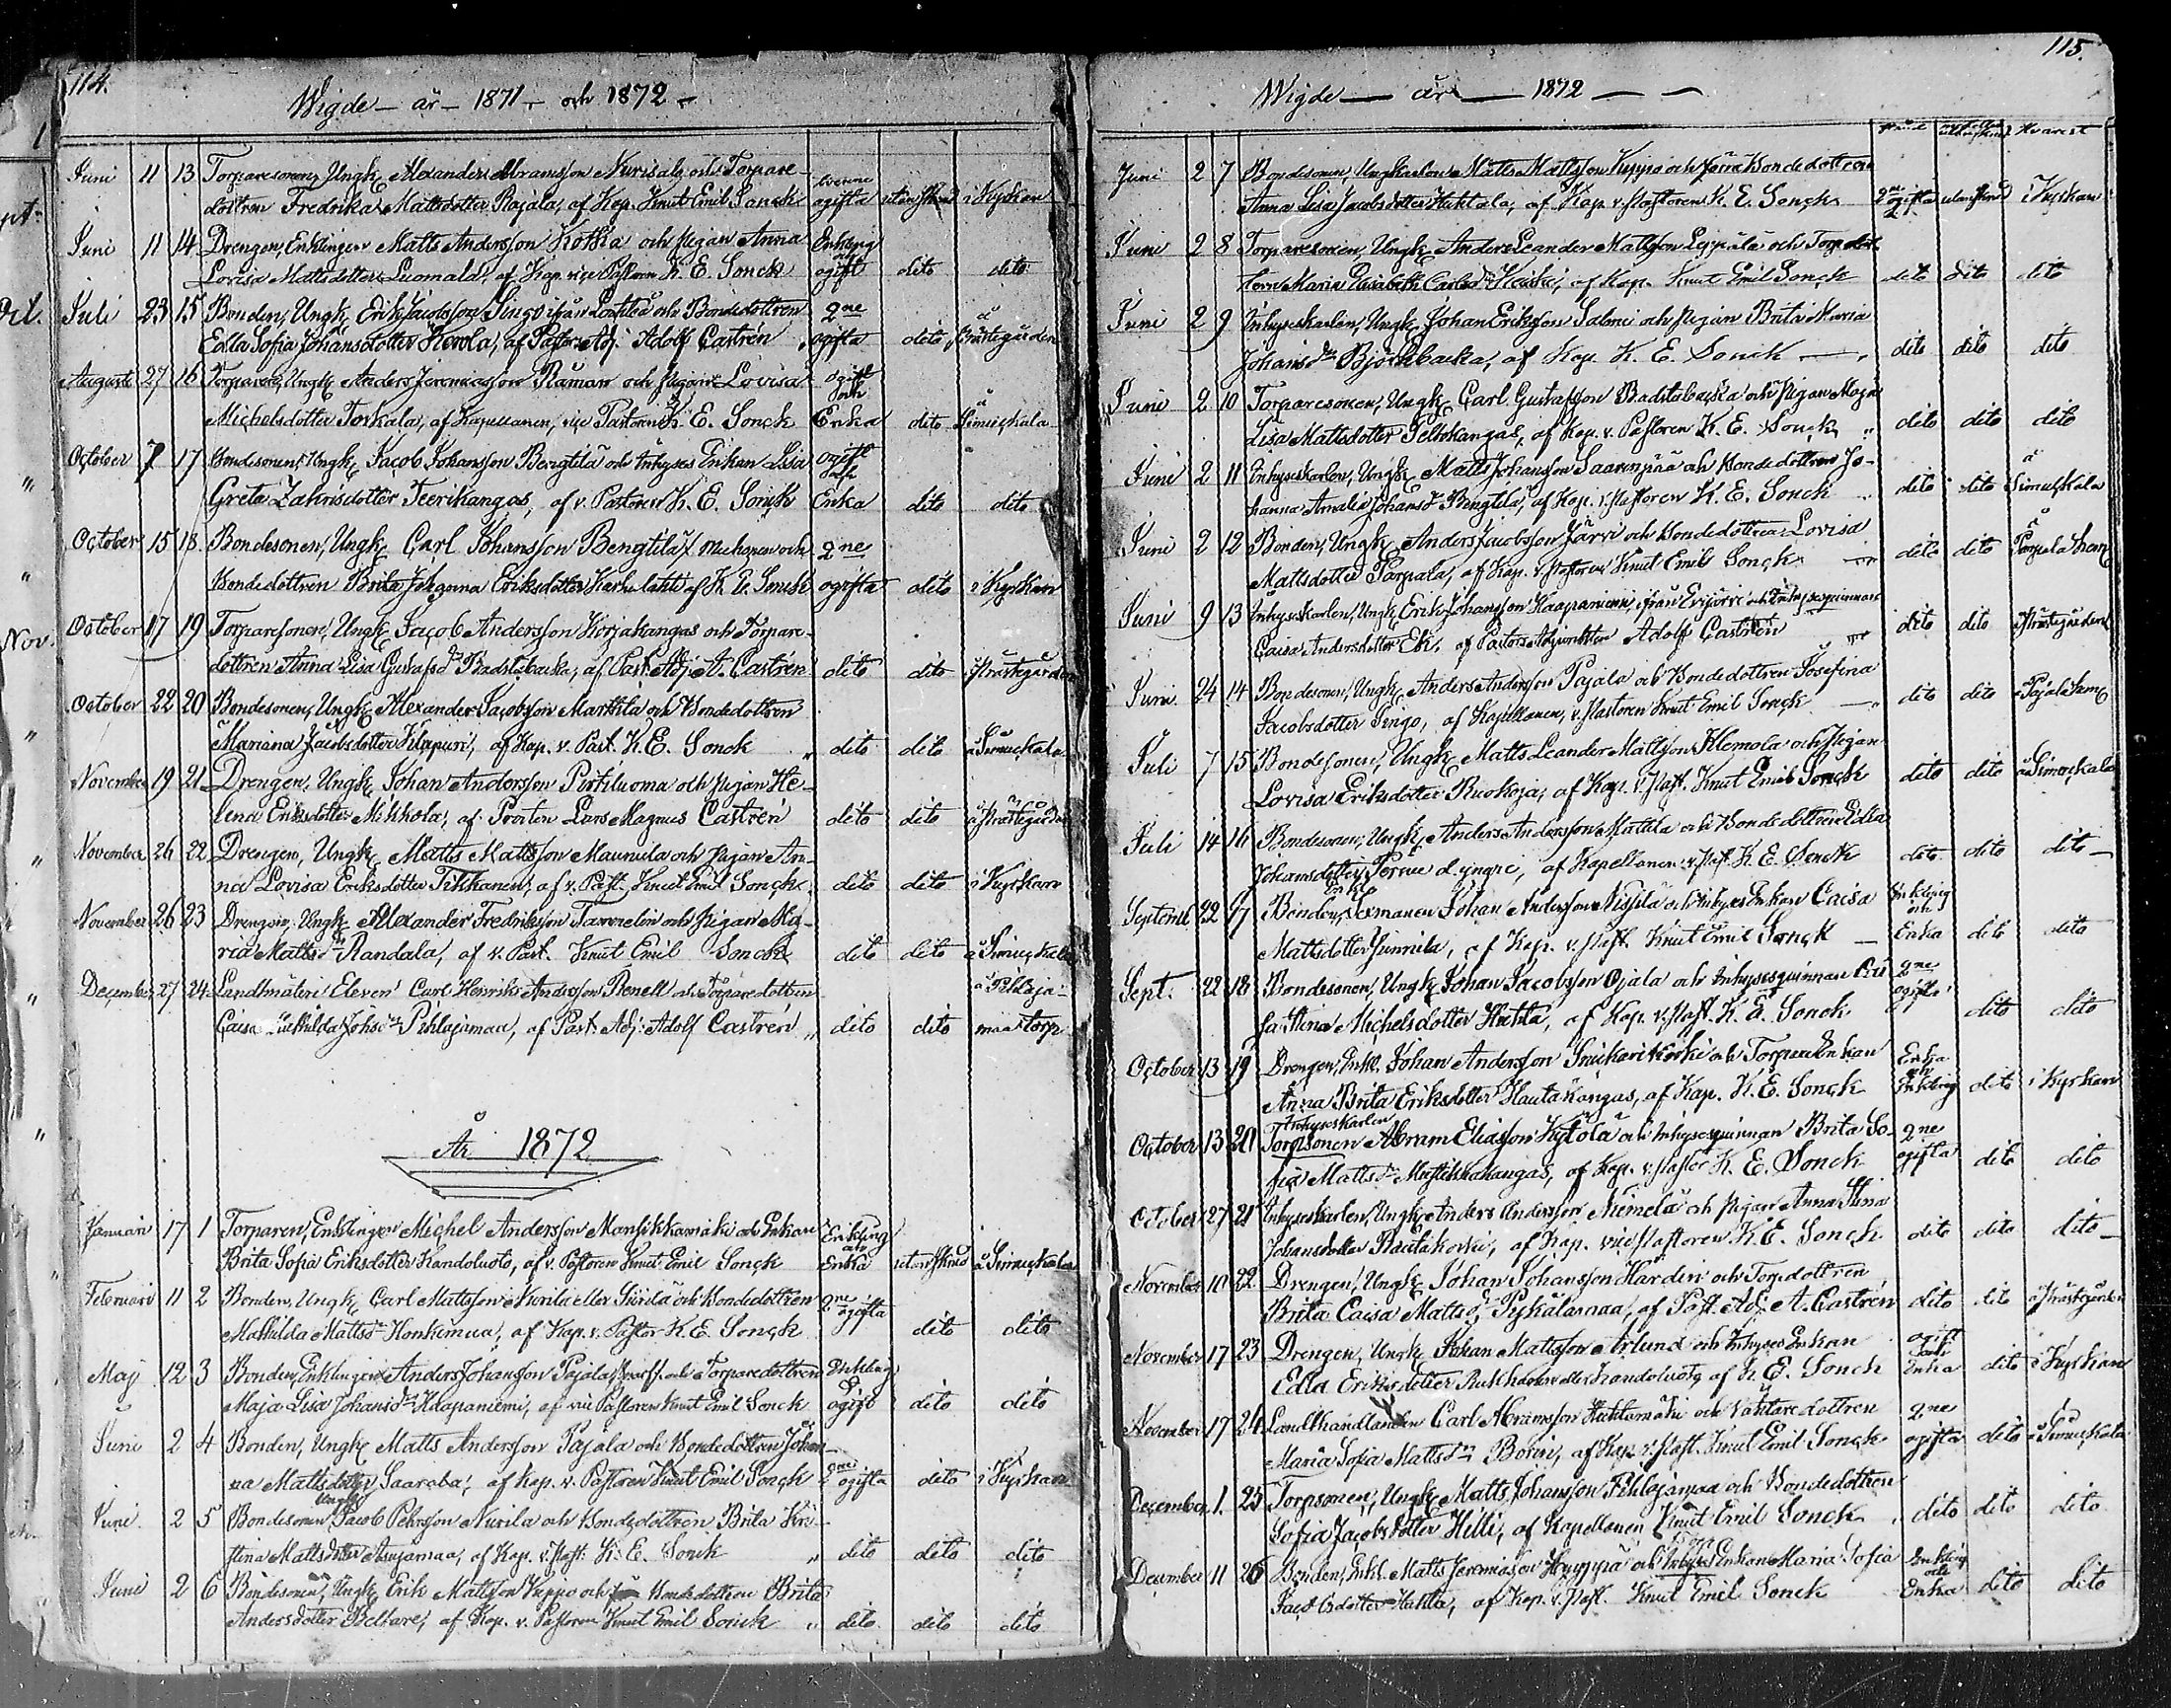 114.
Wigde - år - 1871 - och 1872 -
Juni 11 13 Torparesonen, Ungk. Alexander Abramsson Nurisalo och Torpare-
dottren Fredrika Mattsdotter Rajala, af Kap. Knut Emil Sonck ogifta utan i Kyrkan
Juni 11 14 Drengen, Enklingen Matts Andersson Kothia och pigan Anna Enkling
Lovisa Mattsdotter Luomala, af Kap. vice Pastorn K. E. Sonck ogift dito dito
Juli 23 15 Bonden, Ungk. Erik Jacobsson Singo ifrån och Bondedottren 2ne
Edla Sofia Johansdotter Kerola, af Pastors Adj. Adolf Castrén ogifta dito Prästegården
August 27 16 Torparen, Ungk. Anders Jeremiasson Råman och pigan Lovisa ogift och
Michelsdotter Torkala, af Kapellanen, vice Pastoren K. E. Sonck Enka dito å Simuckala
October 7 17 Bondesonen, Ungk. Jacob Johansson Bengtilä och Inhyses Enkan Lisa ogift och
Greta Zahrisdotter Teerikangas, af v. Pastoren K. E. Sonck Enka dito dito
October 15 18 Bondesonen, Ungk. Carl Johansson Bengtilä och 2ne
Bondedottren Brita Johanna Eriksdotter Karhulahti af K. E. Sonck ogifta dito i Kyrkan
October 17 19 Torparesonen, Ungk. Jacob Andersson Korjakangas och Torpare-
dottren Anna Lisa Gustafsdr Badstubacka, af Past. Adj. A. Castrén dito dito i Prästegården
October 22 20 Bondesonen, Ungk. Alexander Jacobsson Marttila och Bondedottren
Mariana Jacobsdotter Klapuri, af Kap. v. Past. K. E. Sonck dito dito å Simuckala
November 19 21 Drengen, Ungk. Johan Andersson Pirtiluoma och pigan He-
lena Eriksdotter Mikkola, af Prosten Lars Magnus Castrén dito dito å Prästegården
November 26 22 Drengen, Ungk. Matts Mattsson Maunula och pigan An-
na Lovisa Eriksdotter Tikkanen, af v. Past. Knut Emil Sonck dito dito i Kyrkan
November 26 23 Drengen, Ungk. Alexander Fredriksson Taverelin och pigan Ma-
ria Mattsdr Randala, af v. Past. Knut Emil Sonck dito dito å Simuckala
December 27 24 Landtmäteri Eleven Carl Henrik Andersson Renell och Torparedottren å Pihlaja-
Caisa Mathilda Johsdr Pihlajamaa, af Past. Adj. Adolf Castrén dito dito maa torp
År 1872
Januari 17 1 Torparen, Enklingen Michel Andersson Mansikkamäki och Enkan Enkling och
Brita Sofia Eriksdotter Kandoluoto, af v. Pastoren Knut Emil Sonck Enka utan å Simuckala
Februari 11 2 Bonden, Ungk. Carl Mattsson Nurila eller Siirilä och Bondedottren 2ne ogifta
Mathilda Mattsdr Honkimaa, af Kap. v. Pastor K. E. Sonck dito dito
Maj 12 3 Bonden, Enklingen Anders Johansson Pajala och Torparedottren Enkling
Maja Lisa Johansdr Haapaniemi, af vice Pastoren Knut Emil Sonck ogift dito dito
Juni 2 4 Bonden, Ungk. Matts Andersson Pajala och Bondedottren Johan-
na Mattsdotter Saaraba, af Kap. v. Pastoren Knut Emil Sonck 2ne ogifta dito i Kyrkan
Juni 2 5 Bondesonen, Ungk. Jacob Pehrsson Nurila och Bondedottren Brita Kri-
stina Mattsdotter Asujamaa, af Kap. v. Past. K. E. Sonck dito dito dito
Juni 2 6 Bondesonen, Ungk. Erik Mattsson Kuppo och Bondedottren Brita
Andersdotter Beltare, af Kap. v. Pastoren Knut Emil Sonck dito dito dito
115.
Wigde — år — 1872 — —
Hvarest
Juni 2 7 Bondesonen, Ungkarlen Matts Mattsson Kuppo och förra Bondedottren
Anna Lisa Jacobsdotter Huhtala, af Kap. v. Pastoren K. E. Sonck 2ne ogifta utan i Kyrkan
Juni 2 8 Torparesonen, Ungk. Anders Leander Mattsson Leppälä och Torpdot-
tern Maria Elisabeth Carlsdr Heiska, af Kap. Knut Emil Sonck dito dito dito
Juni 2 9 Inhyseskarlen, Ungk. Johan Eriksson Salmi och pigan Brita Maria
Johansdr Björkbacka, af Kap. K. E. Sonck — dito dito dito
Juni 2 10 Torparesonen, Ungk. Carl Gustafsson Badstubacka och pigan Maja
Lisa Mattsdotter Peltokangas, af Kap. v. Pastoren K. E. Sonck dito dito dito
Juni 2 11 Inhyseskarlen, Ungk. Matts Johansson Saarenpää och Bondedottren Jo-
hanna Amalia Johansdr Bengtilä, af Kap. v. Pastoren K. E. Sonck dito dito å Simuckala
Juni 2 12 Bonden, Ungk. Anders Jacobsson Järvi och Bondedottren Lovisa
Mattsdotter Parpala, af Kap. v. Pastoren Knut Emil Sonck dito dito å Parpala hem
Juni 9 13 Inhyseskarlen, Ungk. Erik Johansson Haapaniemi, ifrån Evijärvi och Inhysesquinnan
Caisa Andersdotter Ek, af Pastors Adjunkten Adolf Castrén dito dito å Prästegården
Juni 24 14 Bondesonen, Ungk. Anders Andersson Pajala och Bondedottren Josefina
Jacobsdotter Singo, af Kapellanen, v. Pastoren Knut Emil Sonck dito dito å Pajala hem
Juli 7 15 Bondesonen, Ungk. Matts Leander Mattsson Klemola och pigan
Lovisa Eriksdotter Ruokoja, af Kap. v. Past. Knut Emil Sonck dito dito å Simuckala
Juli 14 16 Bondesonen, Ungk. Anders Andersson Mattila och Bondedottren Edla
Johansdotter d. yngre, af Kapellanen v. Past. K. E. Sonck dito dito dito
Septemb. 22 17 Bonden, Enkl. Johan Andersson Nissilä och Inhyses Enkan Caisa Enkling och
Mattsdotter Junnila, af Kap. v. Past. Knut Emil Sonck Enka dito dito
Sept. 22 18 Bondesonen, Ungk. Johan Jacobsson Ojala och Inhysesquinnan Cai- 2ne
sa Stina Michelsdotter Huhta, af Kap. v. Past. K. E. Sonck ogifta dito dito
October 13 19 Drengen, Enkl. Johan Andersson och Torpare Enkan Enka och
Anna Brita Eriksdotter Hautakangas, af Kap. K. E. Sonck Enkling dito i Kyrkan
Inhyseskarlen
October 13 20 Torpsonen Abram Eliasson Kytölä och Inhysesquinnan Brita So- 2ne
fia Mattsdr Mustikkakangas, af Kap. v. Pastor K. E. Sonck ogifta dito dito
October 27 21 Inhyseskarlen, Ungk. Anders Andersson Niemelä och pigan Anna Stina
Johansdotter Rautakoski, af Kap. vice Pastoren K. E. Sonck dito dito dito
November 10 22 Drengen, Ungk. Johan Johansson Hardin och Torpdottren
Brita Caisa Mattsdr Pyhälamaa, af Past. Adj. A. Castrén dito dito å Prästgården
November 17 23 Drengen, Ungk. Johan Mattsson Aslund och Inhyses Enkan ogift och
Edla Eriksdotter eller Kandoluoto, af K. E. Sonck Enka dito i Kyrkan
November 17 24 Landthandlanden Carl Abramsson Huhtamäki och Vaktaredottren 2ne
Maria Sofia Mattsdr Borin, af Kap. v. Past. Knut Emil Sonck ogifta dito å Simuckala
December 1. 25 Torpsonen, Ungk. Matts Johansson Pihlajamaa och Bondedottren
Sofia Jacobsdotter Hilli, af Kapellanen Knut Emil Sonck dito dito dito
December 11 26 Bonden, Enkl. Matts Jeremiasson Hyyppä och Enkan Maria Sofia Enkling och
Jacobsdotter Huhta, af Kap. v. Past. Knut Emil Sonck Enka dito dito